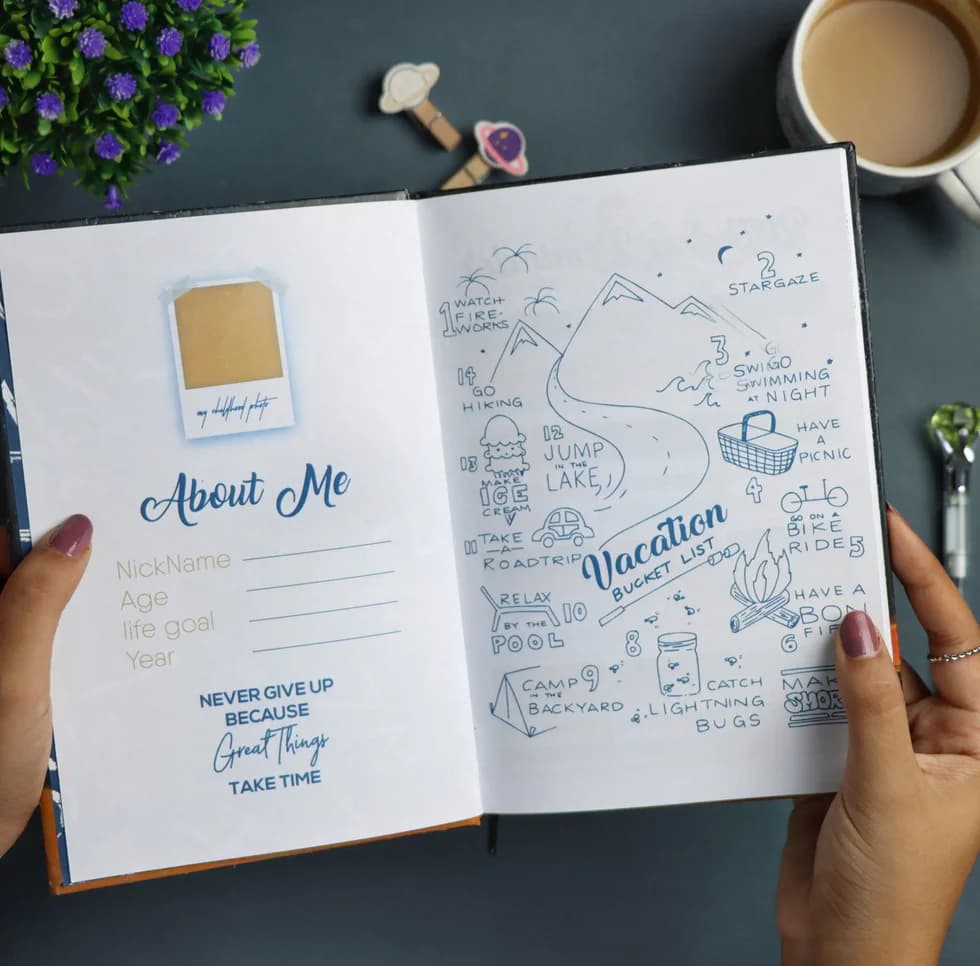 my childhood photo
About Me
NickName
Age
life goal
Year
NEVER GIVE UP
BECAUSE
Great Things
TAKE TIME
1 WATCH
FIRE-
WORKS
2
STARGAZE
3
SWIMMING
AT NIGHT
HAVE
A
PICNIC
4
GO ON A
BIKE
RIDE 5
HAVE A
6
8
CATCH
LIGHTNING
BUGS
CAMP 9
IN THE
BACKYARD
RELAX 10
BY THE
POOL
11 TAKE
A
ROADTRIP
12
JUMP
IN THE
LAKE
13
MAKE
ICE
CREAM
14
GO
HIKING
Vacation
BUCKET LIST